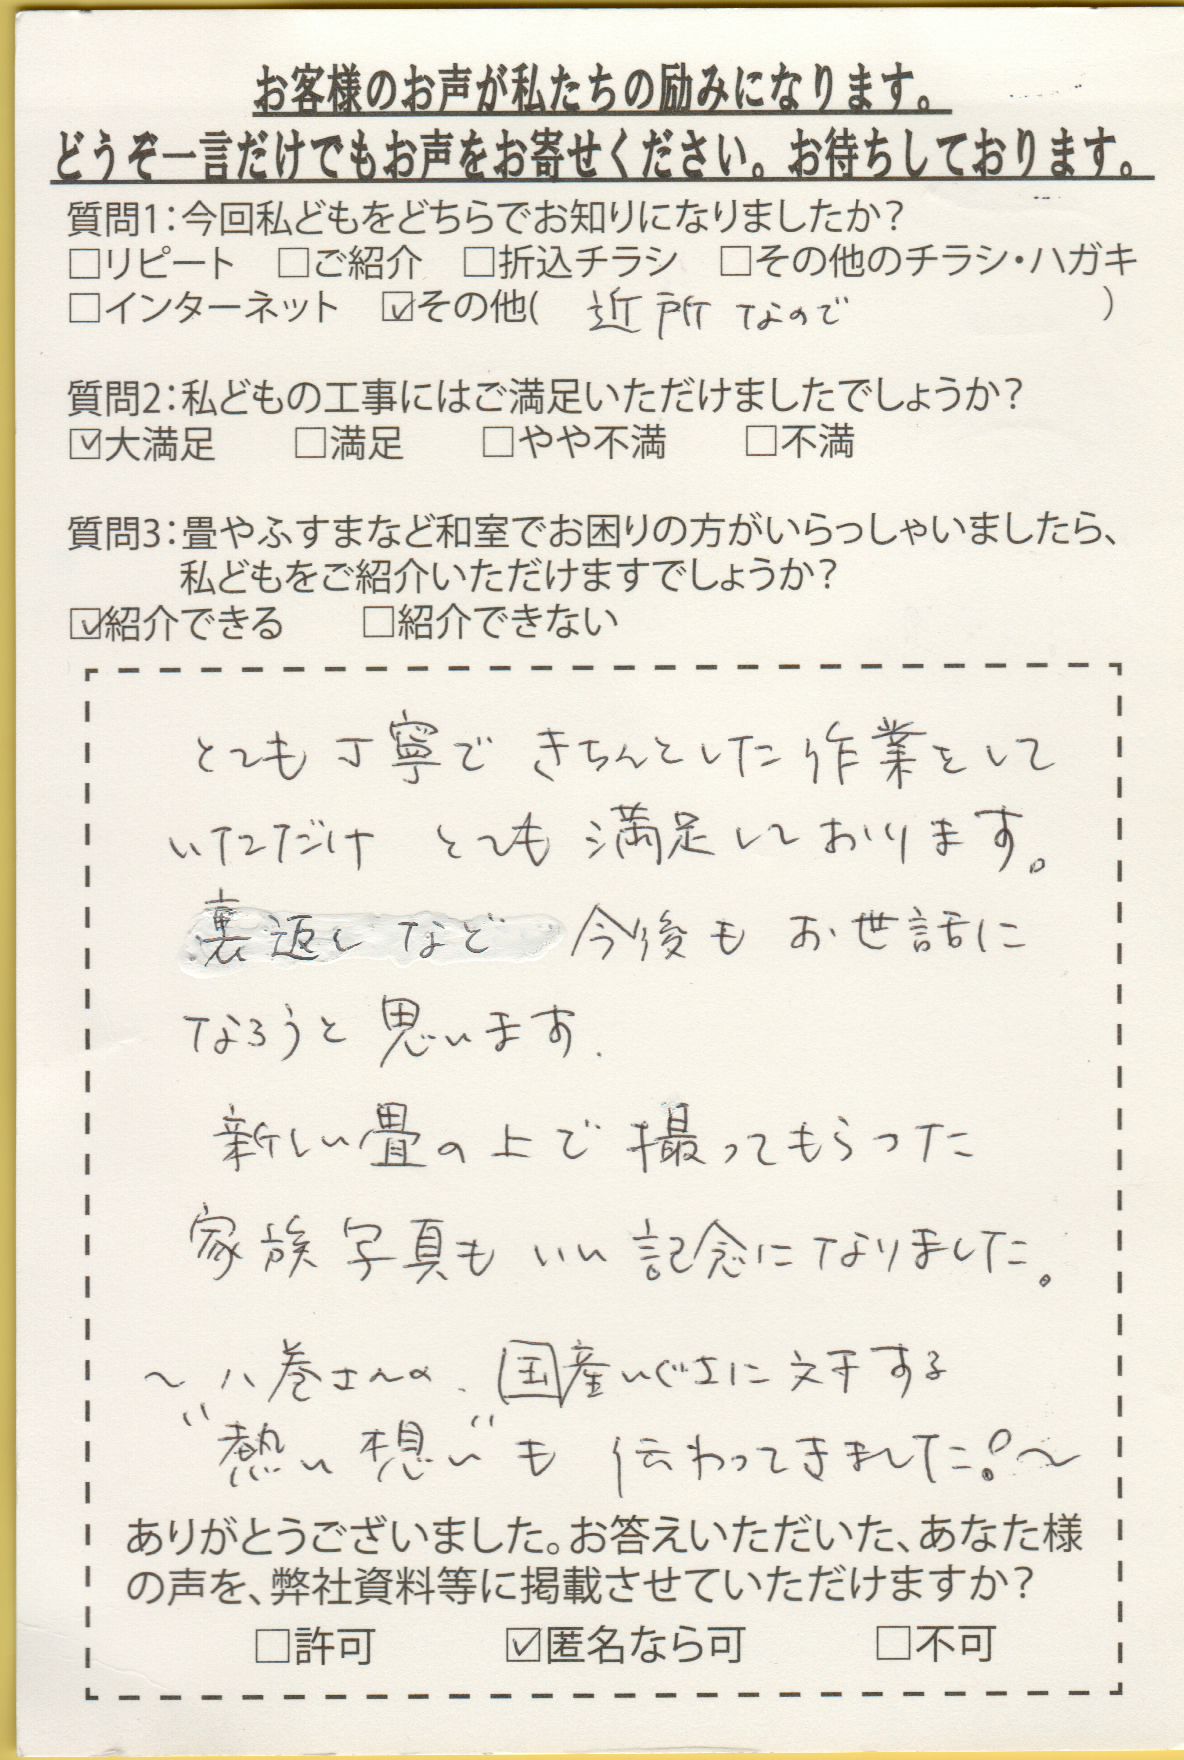 お客様のお声が私たちの励みになります。
どうぞ一言だけでもお声をお寄せください。お待ちしております。
質問1：今回私どもをどちらでお知りになりましたか？
□リピート　□ご紹介　□折込チラシ　□その他のチラシ・ハガキ
□インターネット　☑その他(　近所なので　)
質問2：私どもの工事にはご満足いただけましたでしょうか？
☑大満足　□満足　□やや不満　□不満
質問3：畳やふすまなど和室でお困りの方がいらっしゃいましたら、
私どもをご紹介いただけますでしょうか？
☑紹介できる　□紹介できない
とても丁寧できちんとした作業をして
いただけ とても満足しております。
裏返しなど 今後もお世話に
なろうと思います.
新しい畳の上で撮ってもらった
家族写真もいい記念になりました。
～八巻さんの、国産いぐさに対する
"熱い想い"も 伝わってきました!～
ありがとうございました。お答えいただいた、あなた様
の声を、弊社資料等に掲載させていただけますか？
□許可　☑匿名なら可　□不可